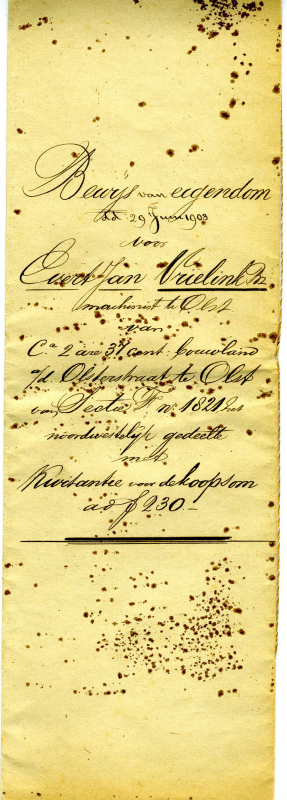 Bewijs van eigendom
dd 29 Juni 1903
voor
Evert Jan Vrielink
machinist te Olst
van
Ca 2 are 37 cent. bouwland
a/d Olsterstraat te Olst
van Sectie F no 1821 het
noordwestelijk gedeelte
met
Kwitantie voor de koopsom
ad f 230 –